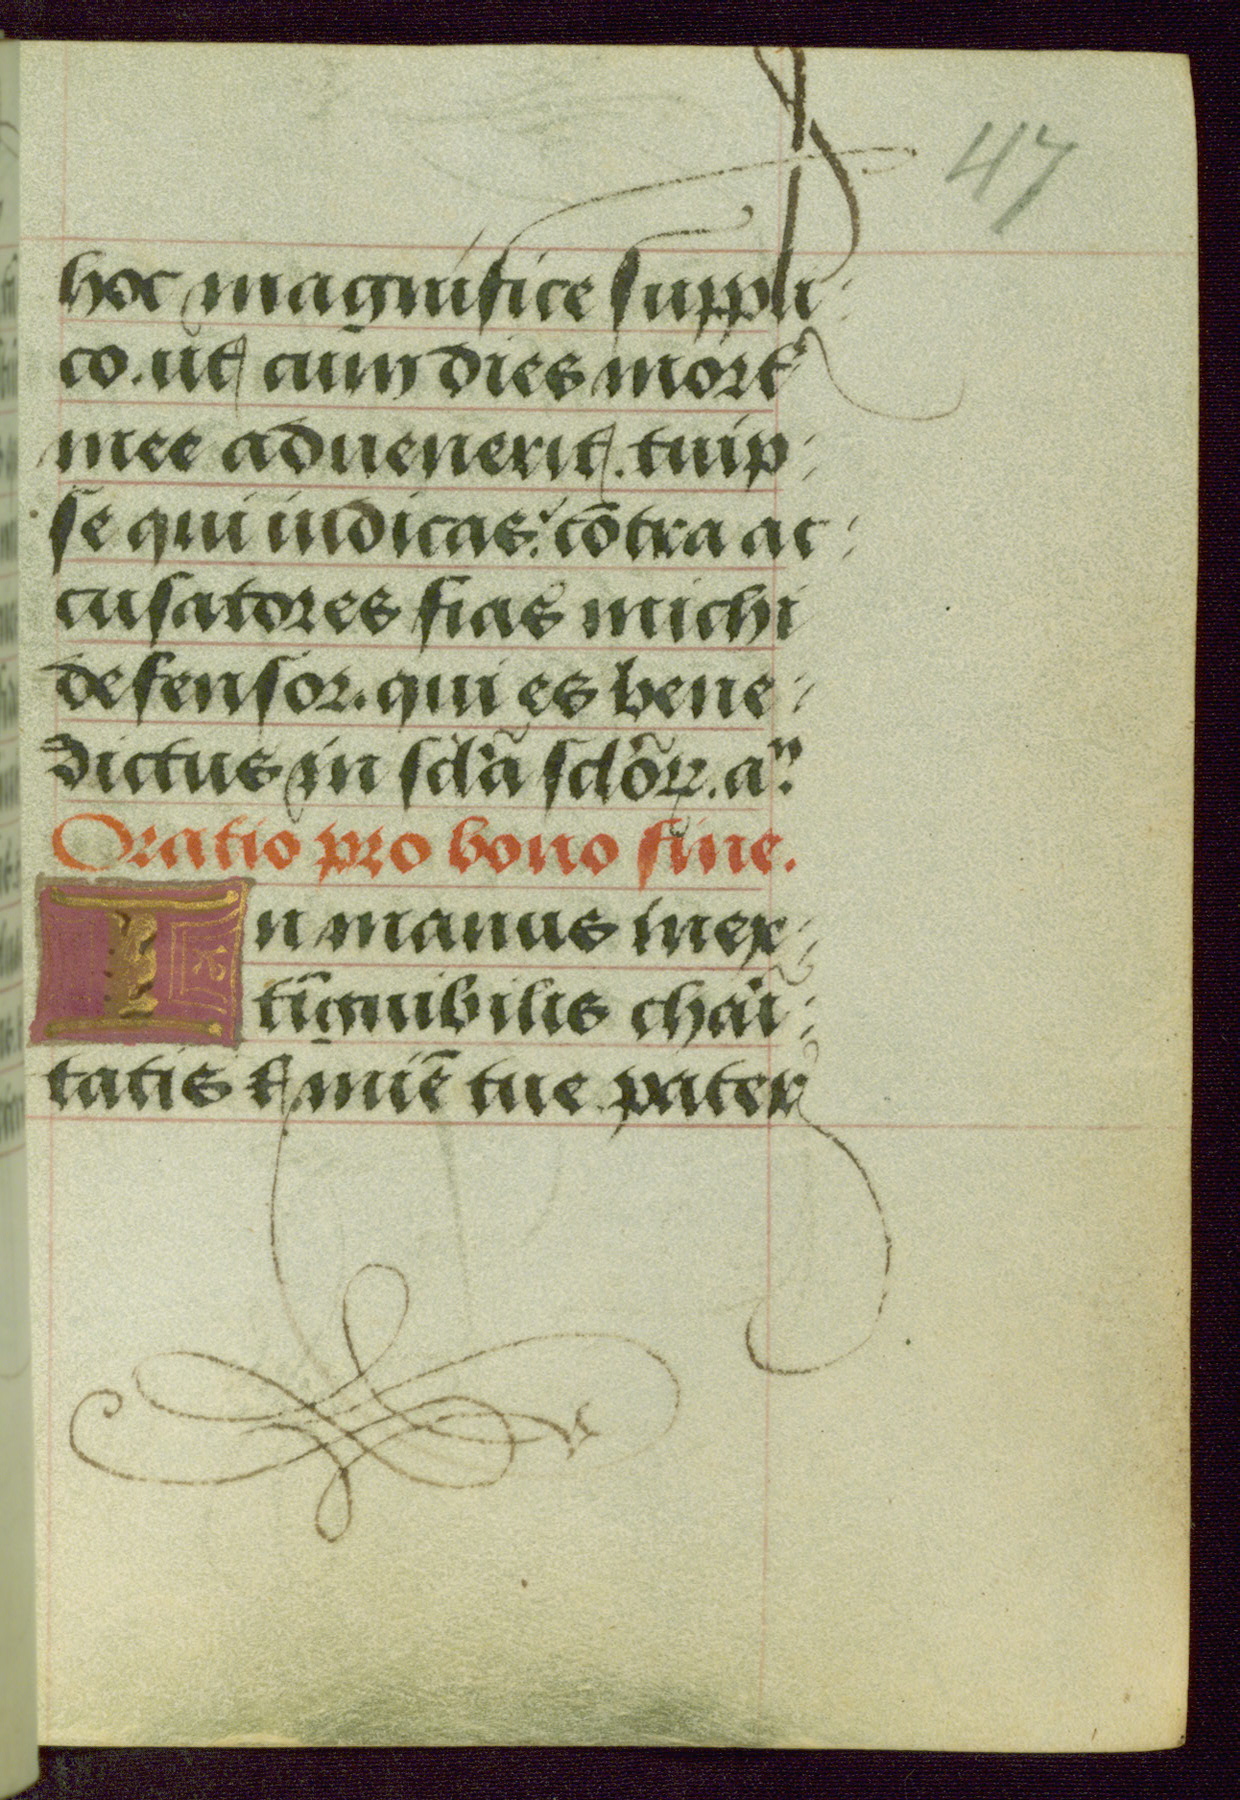 47
hoc magnifice suppli⸗
co. ut cum dies mortꝭ
mee aduenerit. tuip⸗
se qui iudicas: cōtra ac⸗
cusatores fias michi
defensor. qui es bene⸗
dictus in scl'a sclōꝝ. aꝰ.
Oratio pro bono fine.
In manus inex⸗
tīguibilis chãi⸗
tatis & miē tue pater